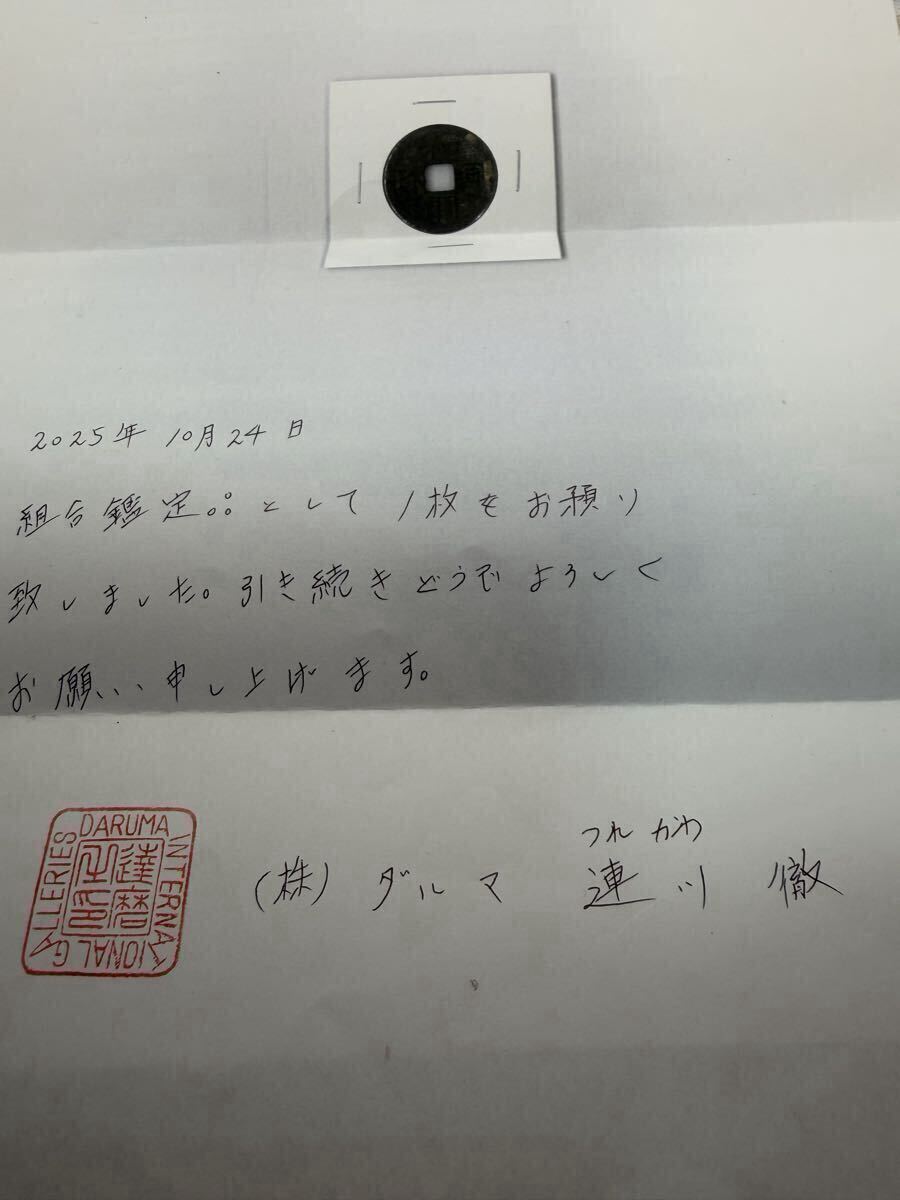 2025年 10月24日
組合鑑定品として1枚をお預り
致しました。引き続きどうぞよろしく
お願い申し上げます。
(株) ダルマ 連川 徹
つれ かわ
DARUMA INTERNATIONAL GALLERIES
達磨之印